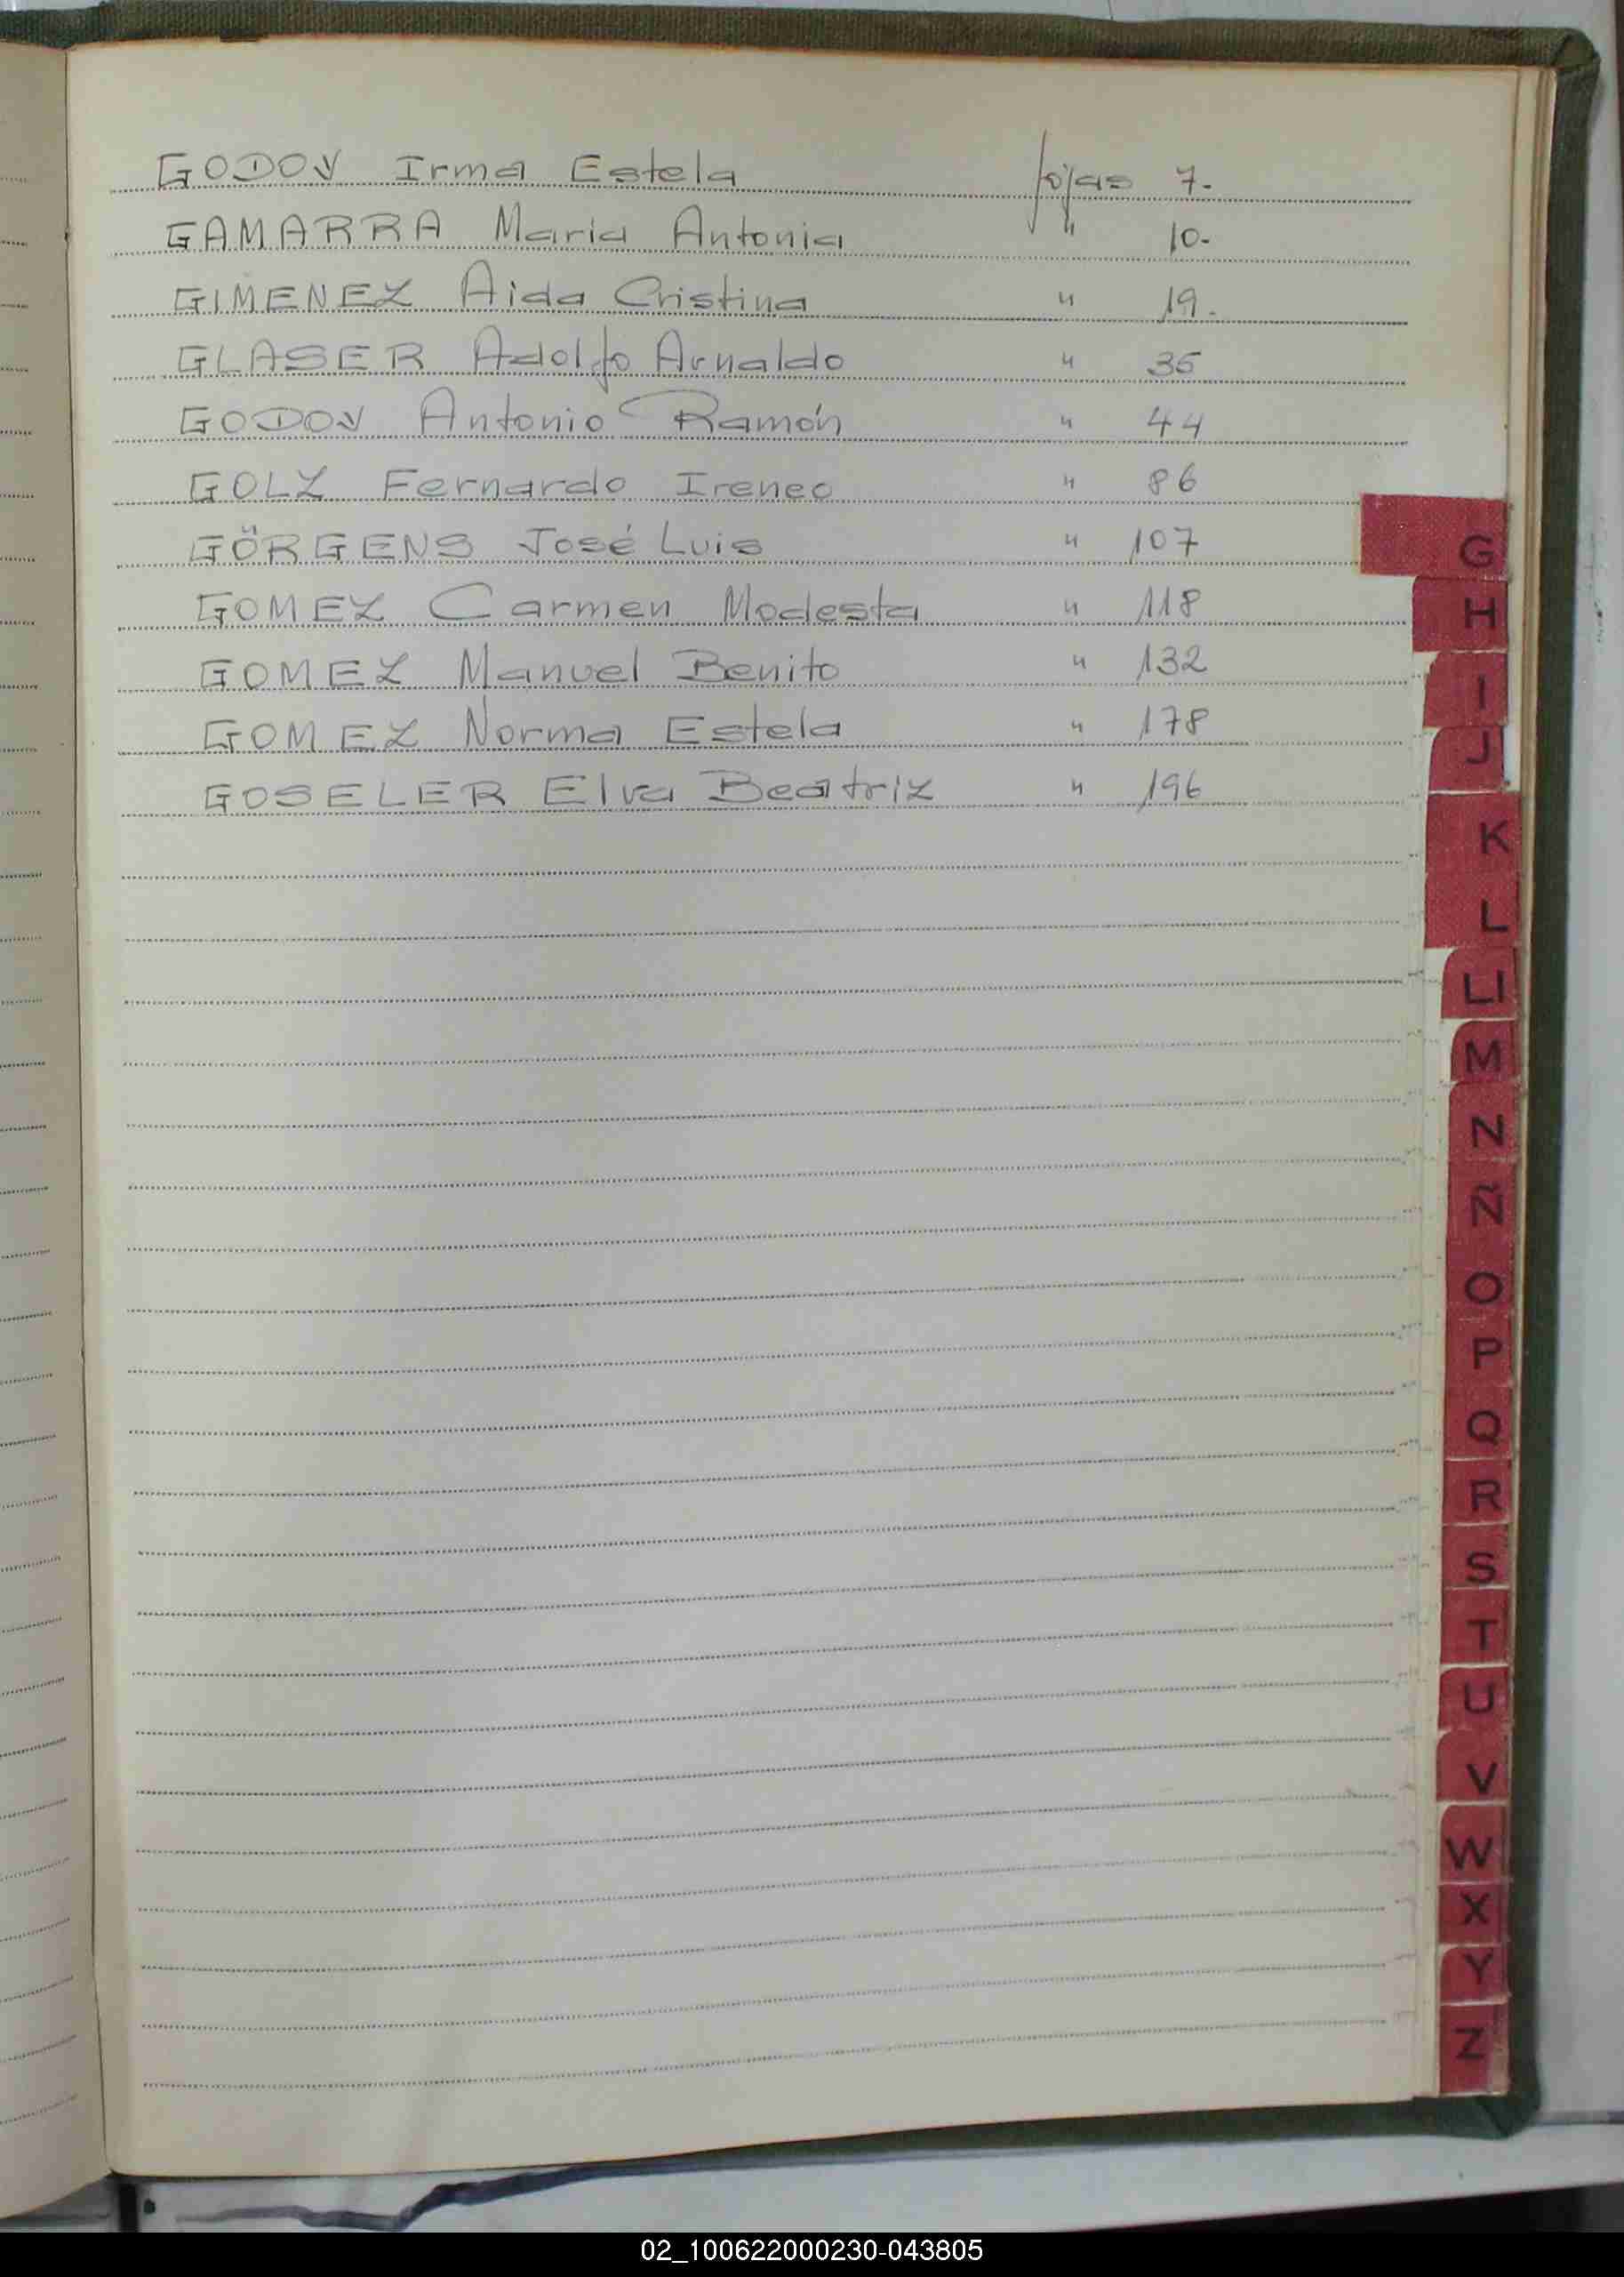 GODOY Irma Estela fojas 7.-
GAMARRA Maria Antonia " 10-
GIMENEZ Aida Cristina " 19.-
GLASER Adolfo Arnaldo " 35
GODOY Antonio Ramón " 44
GOLZ Fernardo Ireneo " 86
GÖRGENS José Luis " 107
GOMEZ Carmen Modesta " 118
GOMEZ Manuel Benito " 132
GOMEZ Norma Estela " 178
GOSELER Elva Beatriz " 196
G
H
I
J
K
L
Ll
M
N
Ñ
O
P
Q
R
S
T
U
V
W
X
Y
Z
02_100622000230-043805